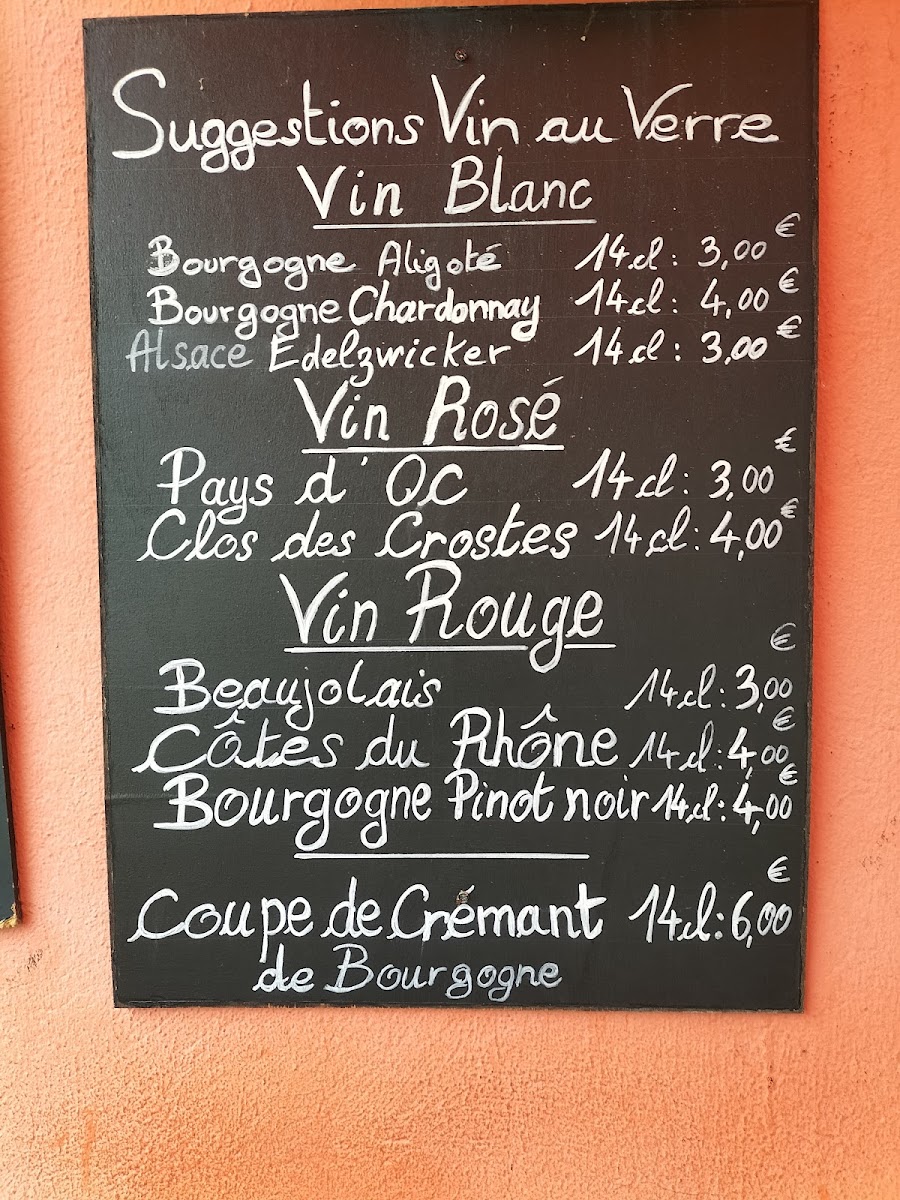 Suggestions Vin au Verre
Vin Blanc
Bourgogne Aligoté 14cl : 3,00 €
Bourgogne Chardonnay 14cl : 4,00 €
Alsace Edelzwicker 14cl : 3,00 €
Vin Rosé
Pays d'OC 14cl : 3,00 €
Clos des Crostes 14cl : 4,00 €
Vin Rouge
Beaujolais 14cl : 3,00 €
Côtes du Rhône 14cl : 4,00 €
Bourgogne Pinot noir 14cl : 4,00 €
Coupe de Crémant 14cl : 6,00 €
de Bourgogne